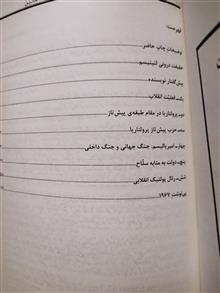 فهرست
توضیحات چاپ حاضر
حقیقت درونی لنینیسم
پیش‌گفتار نویسنده
یک_ فعلیّت انقلاب
دو_ پرولتاریا در مقام طبقه‌ی پیش‌تاز
سه_ حزب پیش‌تاز پرولتاریا
چهار_ امپریالیسم: جنگ جهانی و جنگ داخلی
پنج_ دولت به مثابه سلّاح
شش_ رئال پولتیک انقلابی
پی‌نوشت ۱۹۶۷